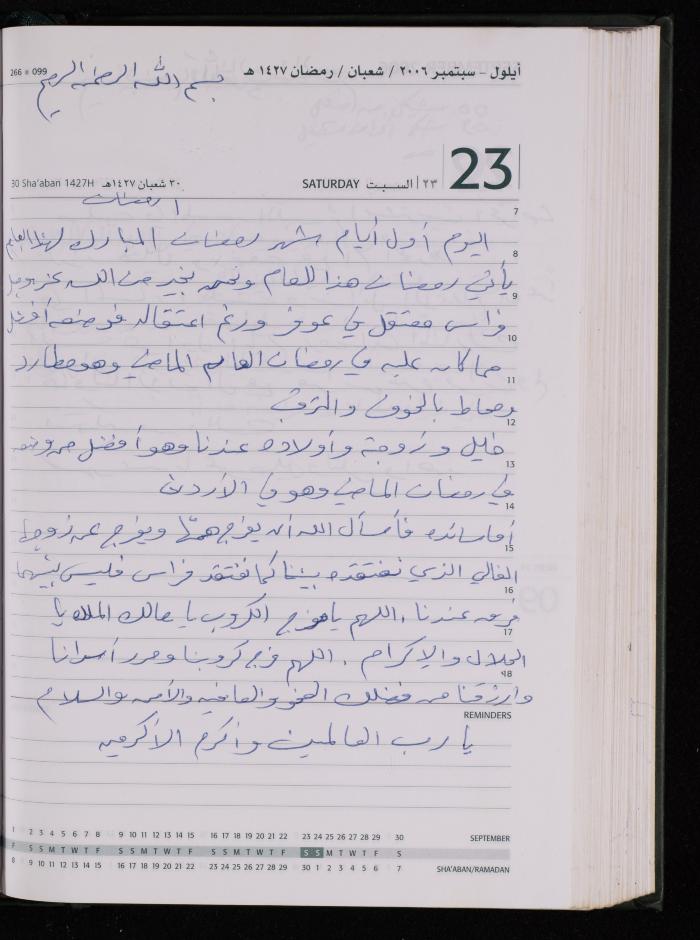 أيلول - سبتمبر ٢٠٠٦ / شعبان / رمضان ١٤٢٧ هـ
266 * 099
بسم الله الرحمن الرحيم
23
٢٣ السبت SATURDAY
٣٠ شعبان ١٤٢٧هـ 30 Sha'aban 1427H
١ رمضان
7
اليوم أول أيام شهر رمضان المبارك لهذا العام
8
يأتي رمضان هذا العام ونحن بخير من الله عز وجل
9
فراس معتقل في عوفر ورغم اعتقاله فوضعه أفضل
10
مما كان عليه في رمضان العام الماضي وهو مطارد
11
ومحاط بالخوف والترقب
12
خليل وزوجته وأولاده عندنا وهو أفضل من وضعه
13
في رمضان الماضي وهو في الأردن
14
أما سائده فأسأل الله أن يفرج همها ويفرج عن زوجها
15
الغالي الذي نفتقده بيننا كما نفتقد فراس فليس بينهما
16
فرق عندنا، اللهم يا مفرج الكروب يا مالك الملك يا
17
الجلال والإكرام، اللهم فرج كروبنا وحرر أسرانا
18
وارزقنا من فضلك العفو والعافيه والأمن والسلام
REMINDERS
يا رب العالمين وأكرم الأكرمين
1 2 3 4 5 6 7 8 9 10 11 12 13 14 15 16 17 18 19 20 21 22 23 24 25 26 27 28 29 30 SEPTEMBER
F S S M T W T F S S M T W T F S S M T W T F S S M T W T F S
8 9 10 11 12 13 14 15 16 17 18 19 20 21 22 23 24 25 26 27 28 29 30 1 2 3 4 5 6 7 SHA'ABAN/RAMADAN